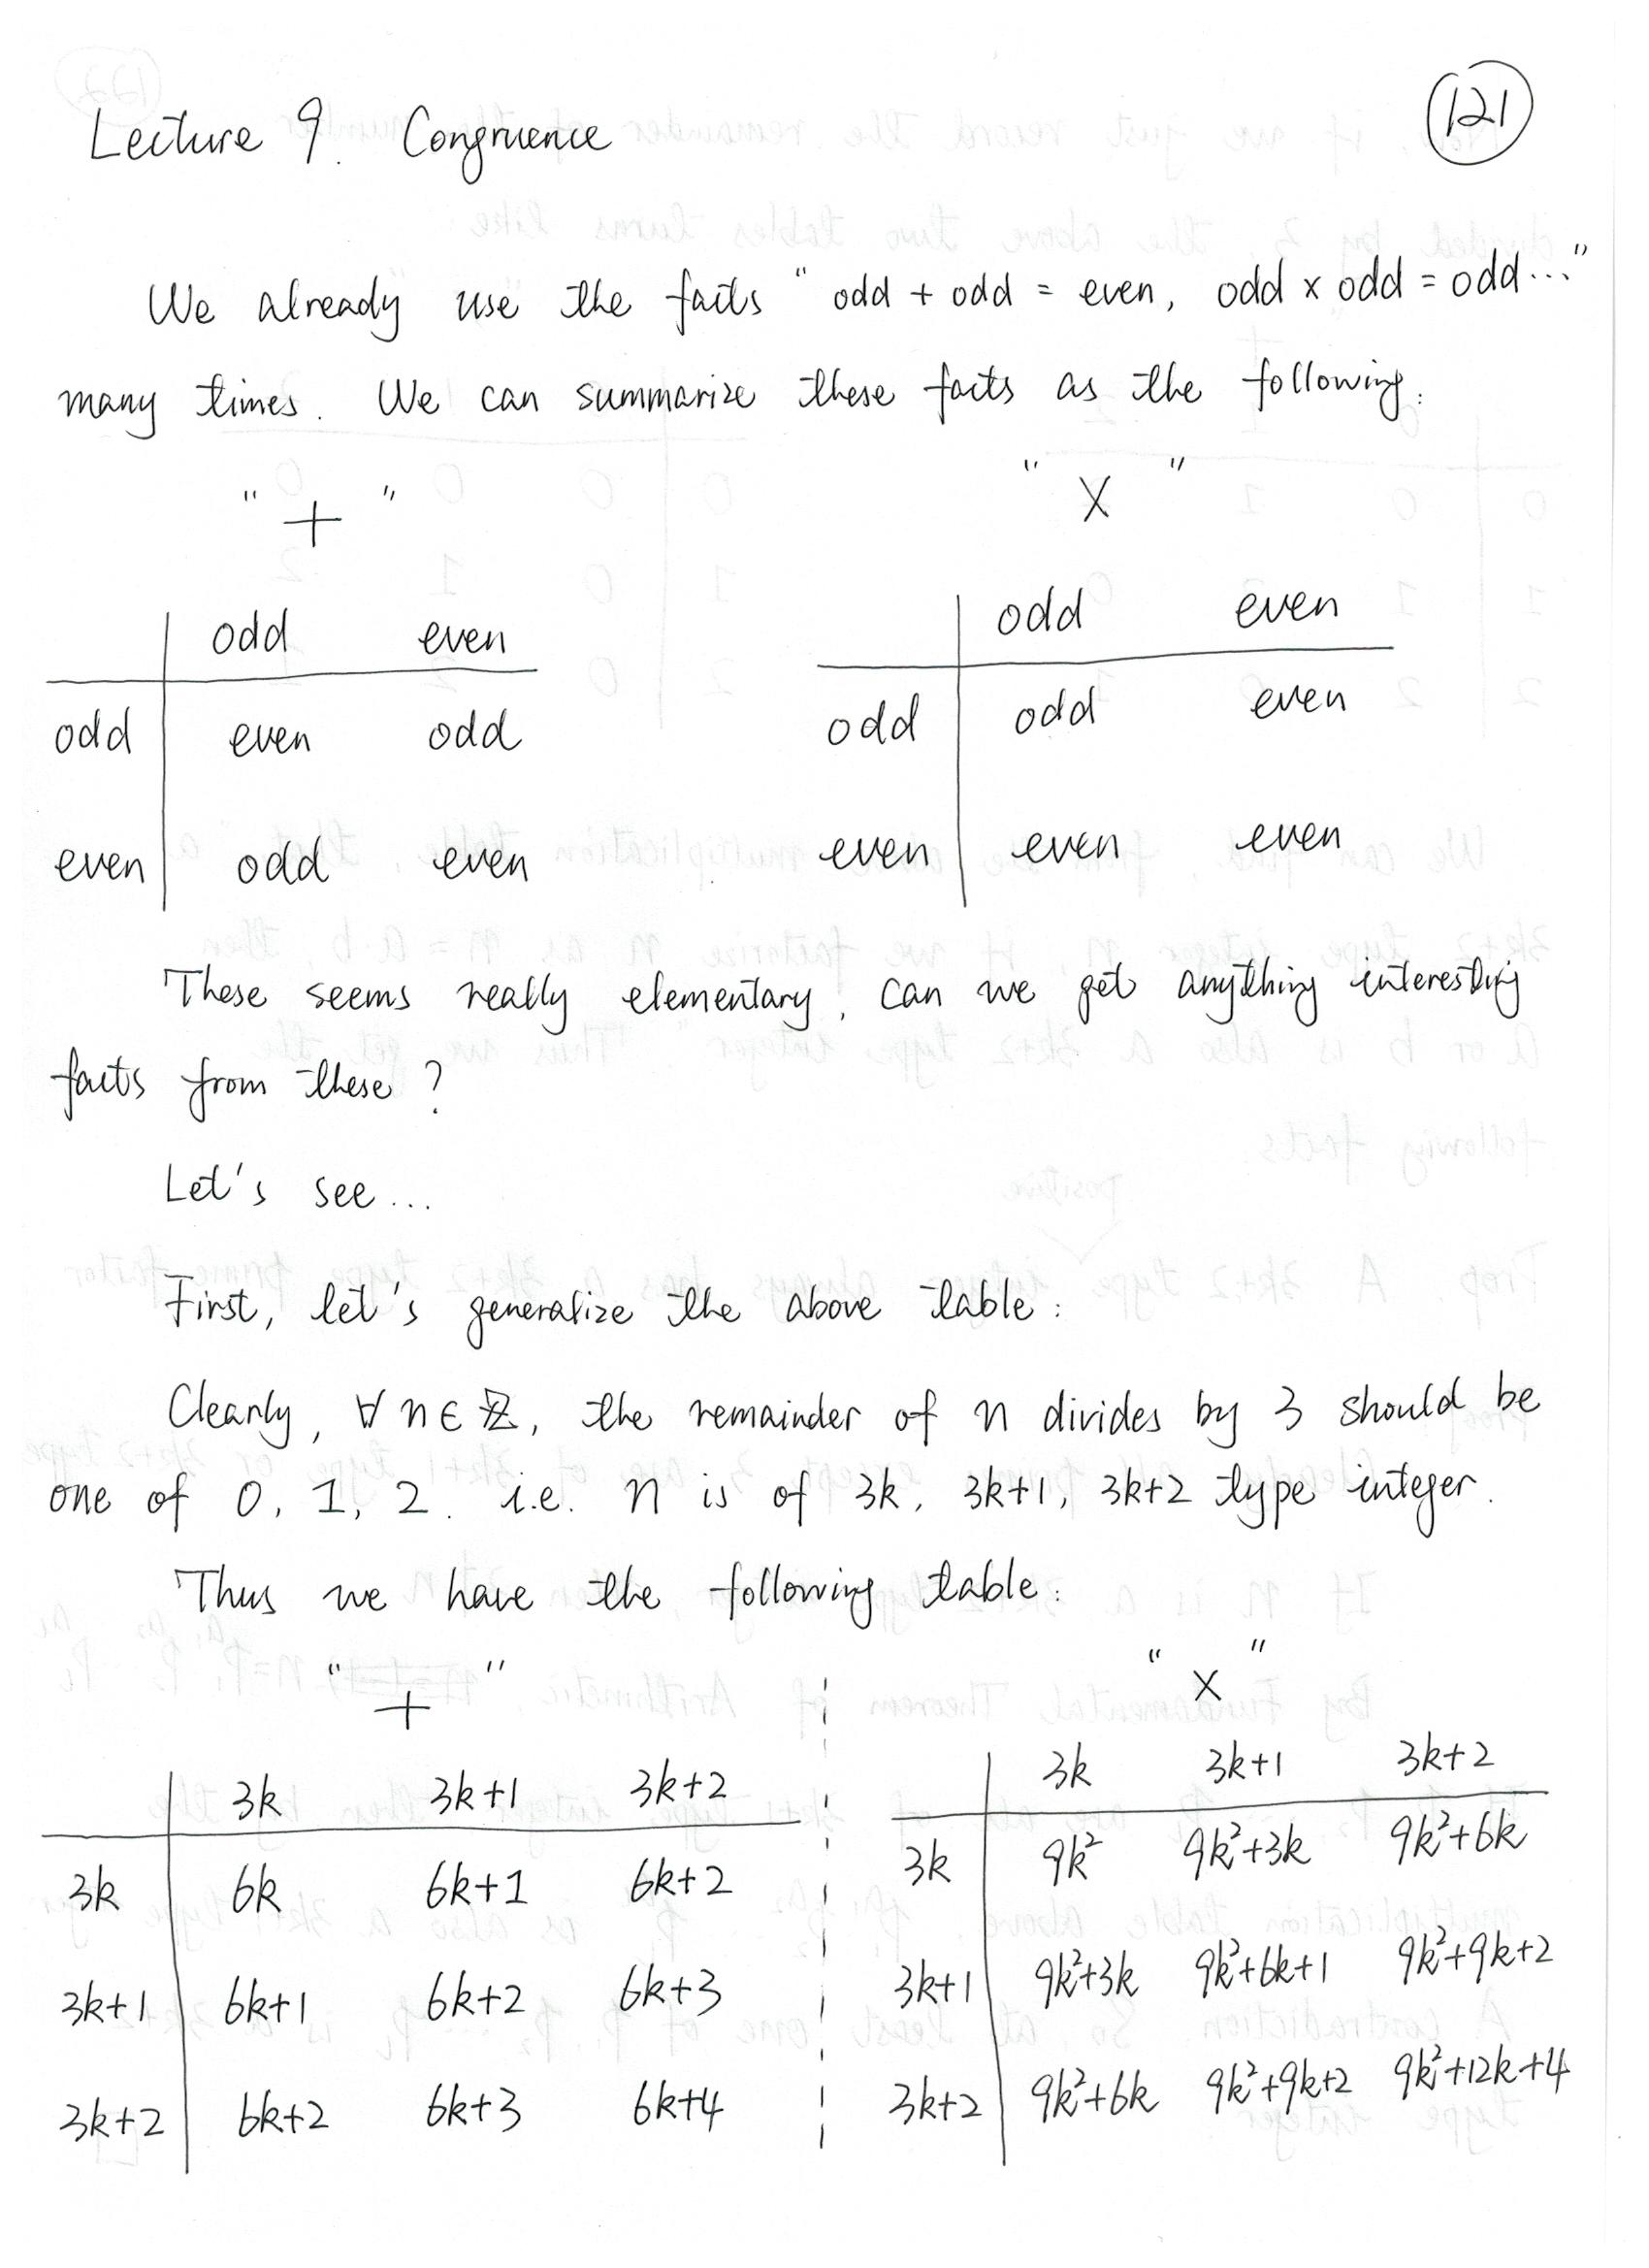 Lecture 9. Congruence
121
We already use the facts "odd + odd = even, odd x odd = odd..."
many times. We can summarize these facts as the following:
"+"
odd even
odd even odd
even odd even
"X"
odd even
odd odd even
even even even
These seems really elementary, can we get anything interesting
facts from these?
Let's see...
First, let's generalize the above table:
Clearly, ∀ n ∈ ℤ, the remainder of n divides by 3 should be
one of 0, 1, 2. i.e. n is of 3k, 3k+1, 3k+2 type integer.
Thus we have the following table:
"+"
3k 3k+1 3k+2
3k 6k 6k+1 6k+2
3k+1 6k+1 6k+2 6k+3
3k+2 6k+2 6k+3 6k+4
"X"
3k 3k+1 3k+2
3k 9k² 9k²+3k 9k²+6k
3k+1 9k²+3k 9k²+6k+1 9k²+9k+2
3k+2 9k²+6k 9k²+9k+2 9k²+12k+4